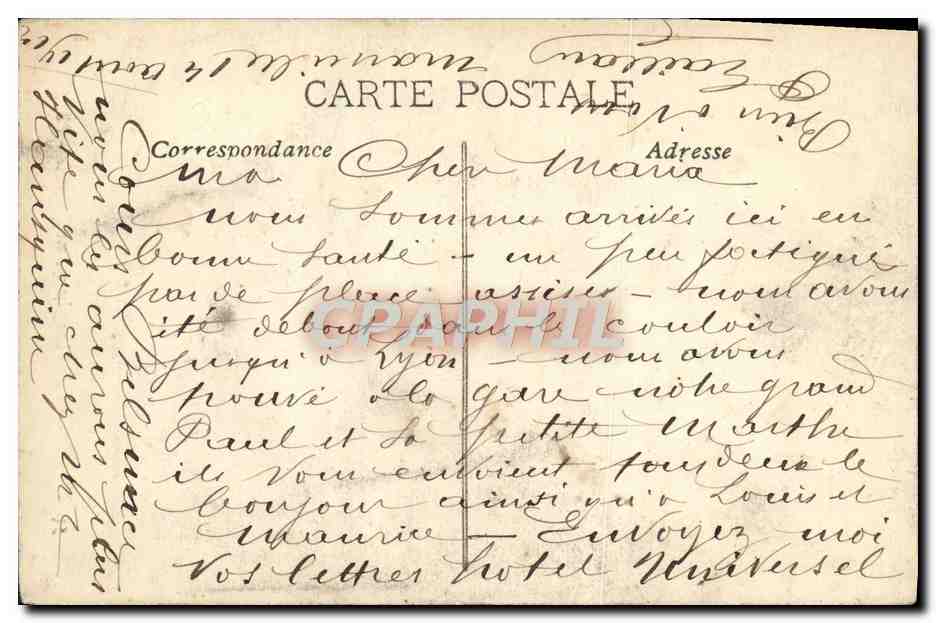 CARTE POSTALE
Correspondance
Adresse
Marseille 14 aout
ma Cher Maria
nous sommes arrivés ici en
bonne santé – un peu fatigués
pas de place assises – nous avons
été debout dans le couloir
jusqu'à Lyon – nous avons
trouvé à la gare notre grand
Paul et sa petite Marthe
ils vous envoient tous deux le
bonjour ainsi qu'à Louis et
Maurice – Envoyez moi
vos lettres hotel Universel
Cours Belsunce
nous les aurons plus
vite que chez Mr
Bien à vous
CPAPHIL